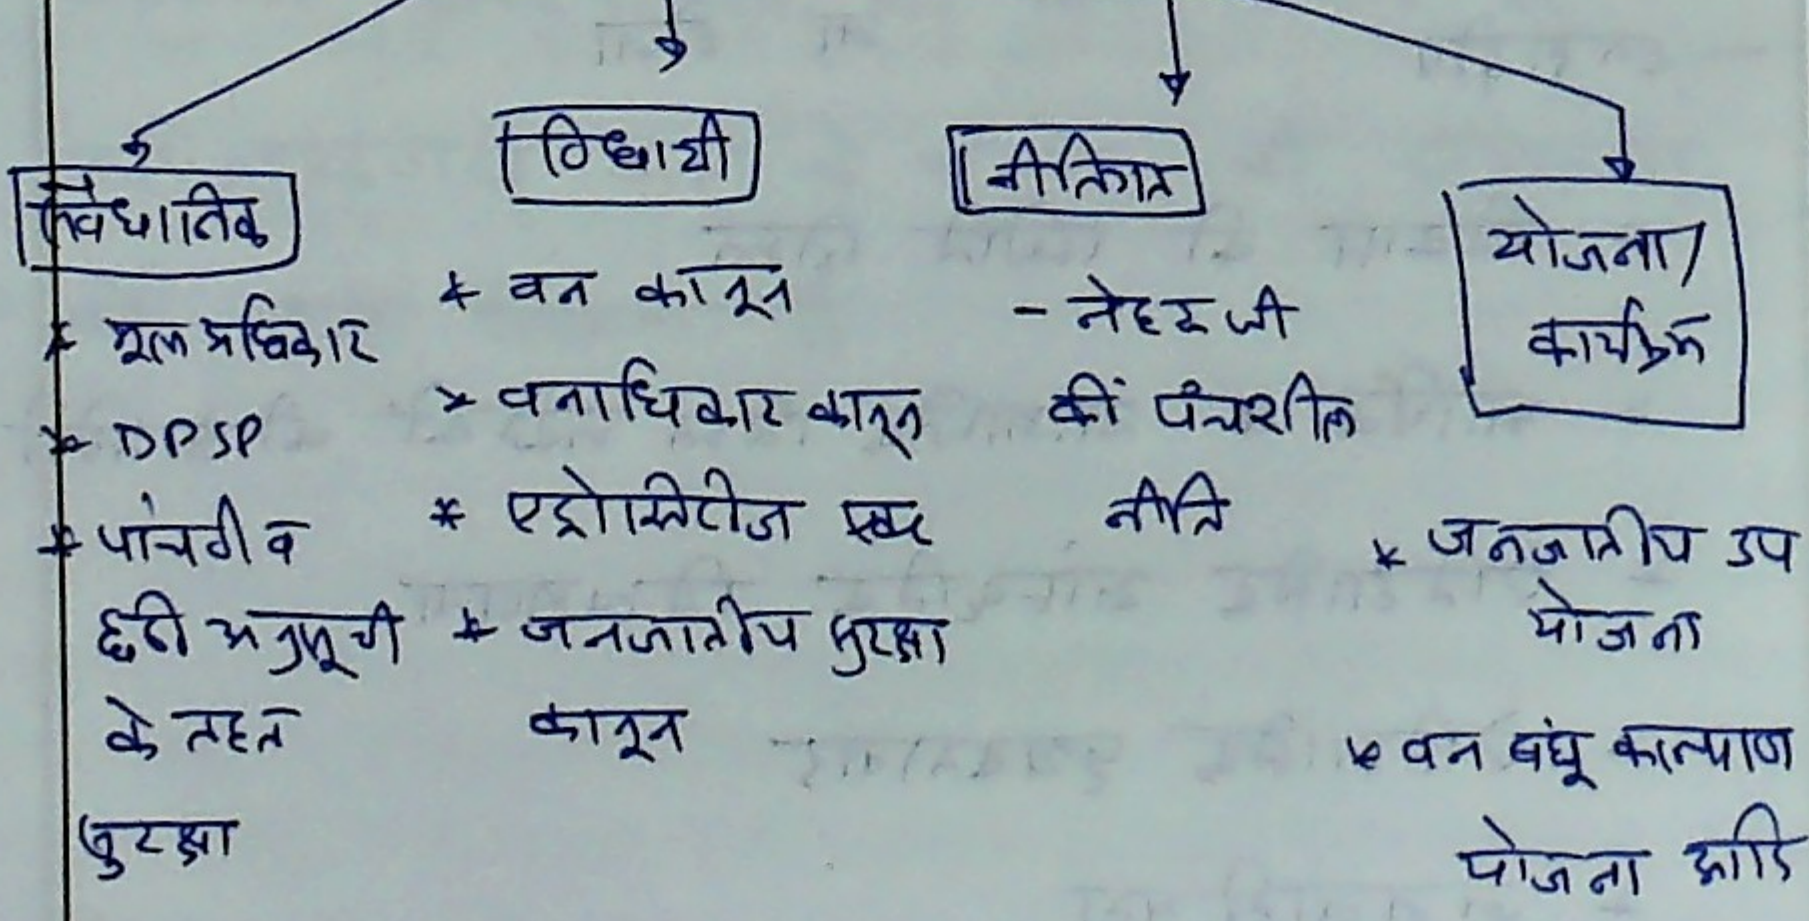 संवैधानिक
* मूल अधिकार
* DPSP
* पांचवी व
छठी अनुसूची
के तहत
सुरक्षा
विधायी
* वन कानून
* वनाधिकार कानून
* एट्रोसिटीज एक्ट
* जनजातीय सुरक्षा
कानून
नीतिगत
- नेहरू जी
की पंचशील
नीति
योजना/
कार्यक्रम
* जनजातीय उप
योजना
* वन बंधू कल्याण
योजना आदि